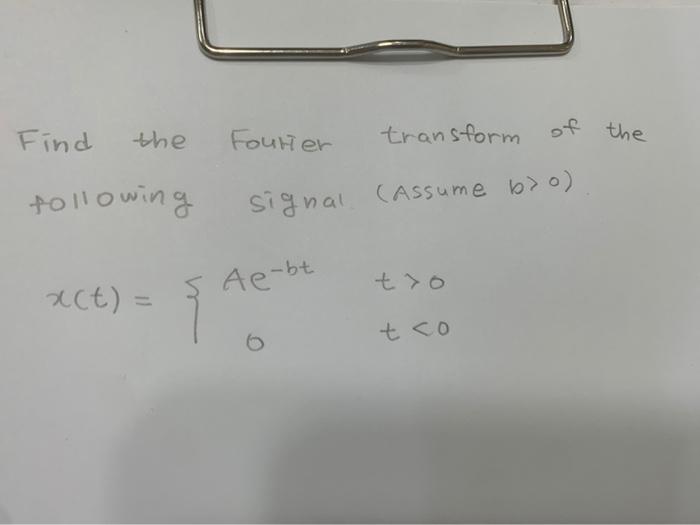 Find the Fourier transform of the
following signal. (Assume b>0).
x(t) = { Ae^-bt t>0
0 t<0